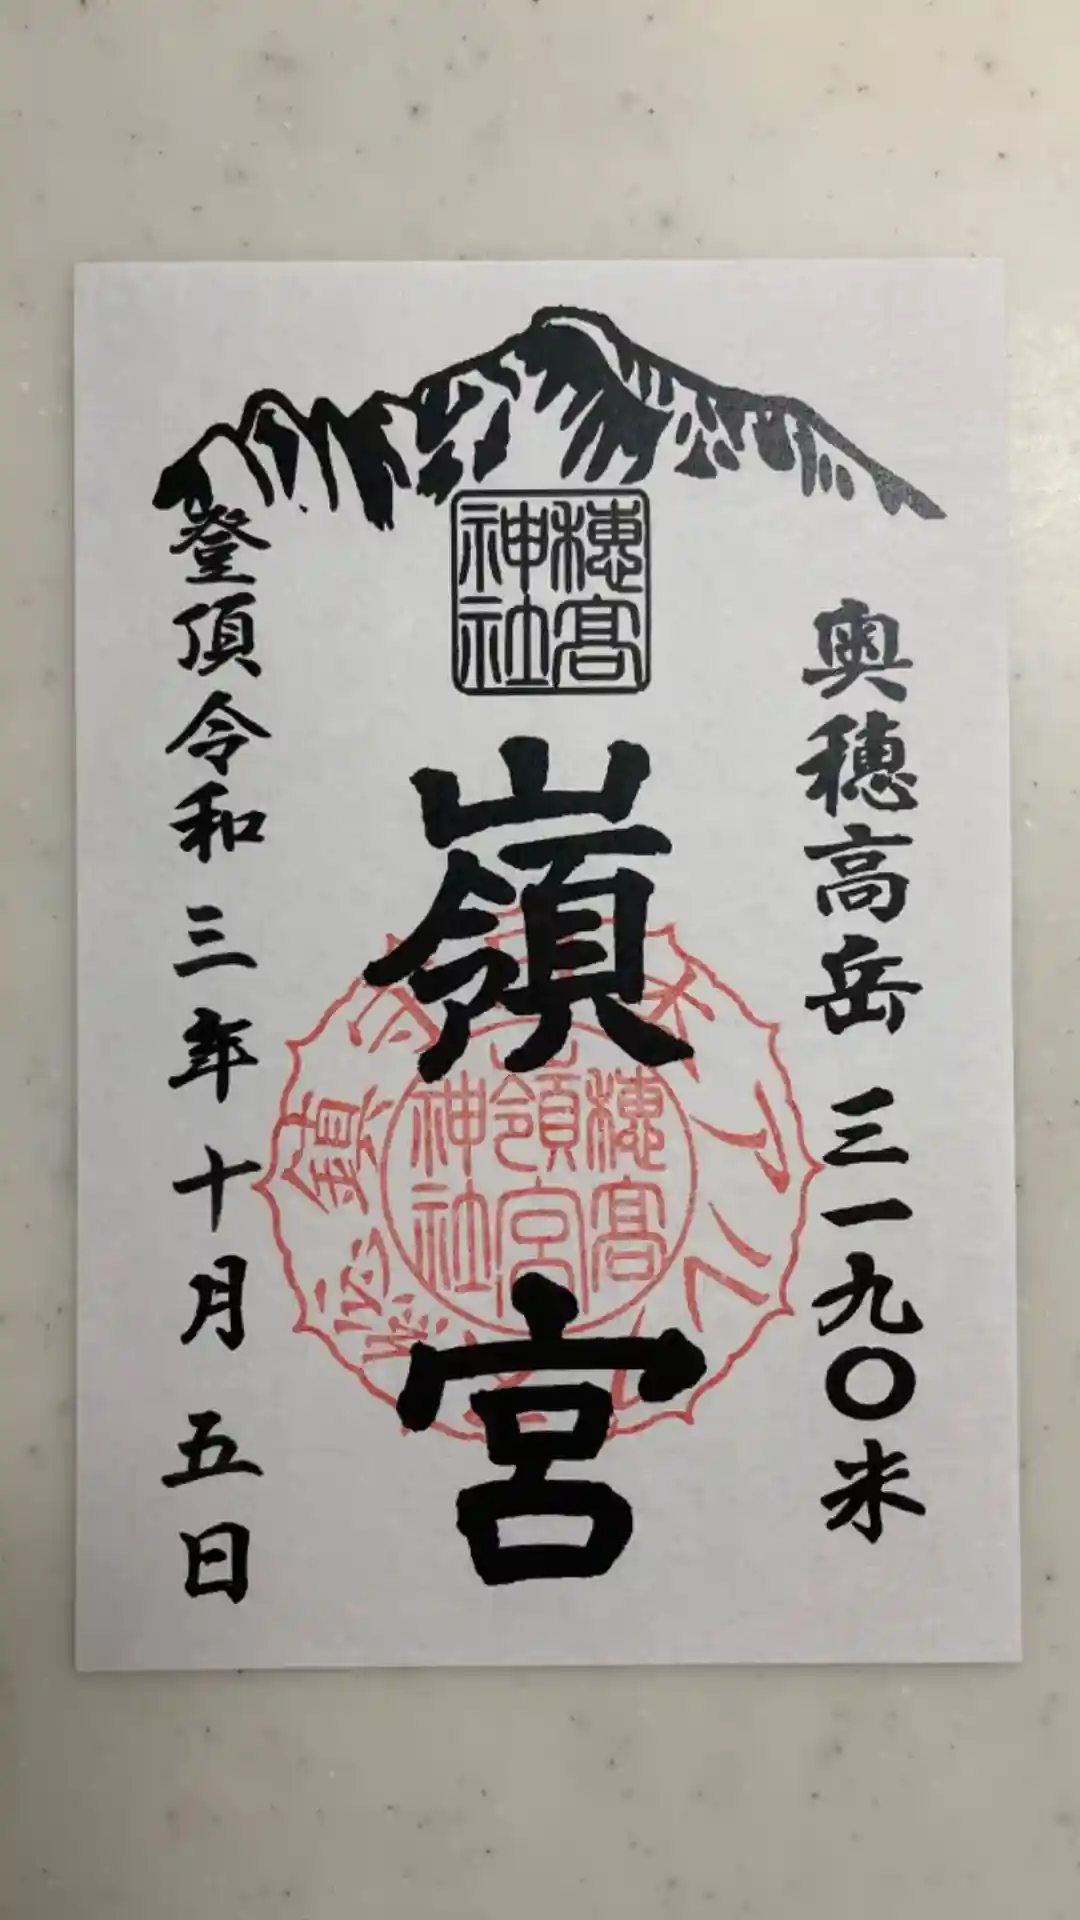 奥穂高岳 三一九〇米
穂高
神社
嶺宮
穂高
嶺宮
神社
登頂令和三年十月五日